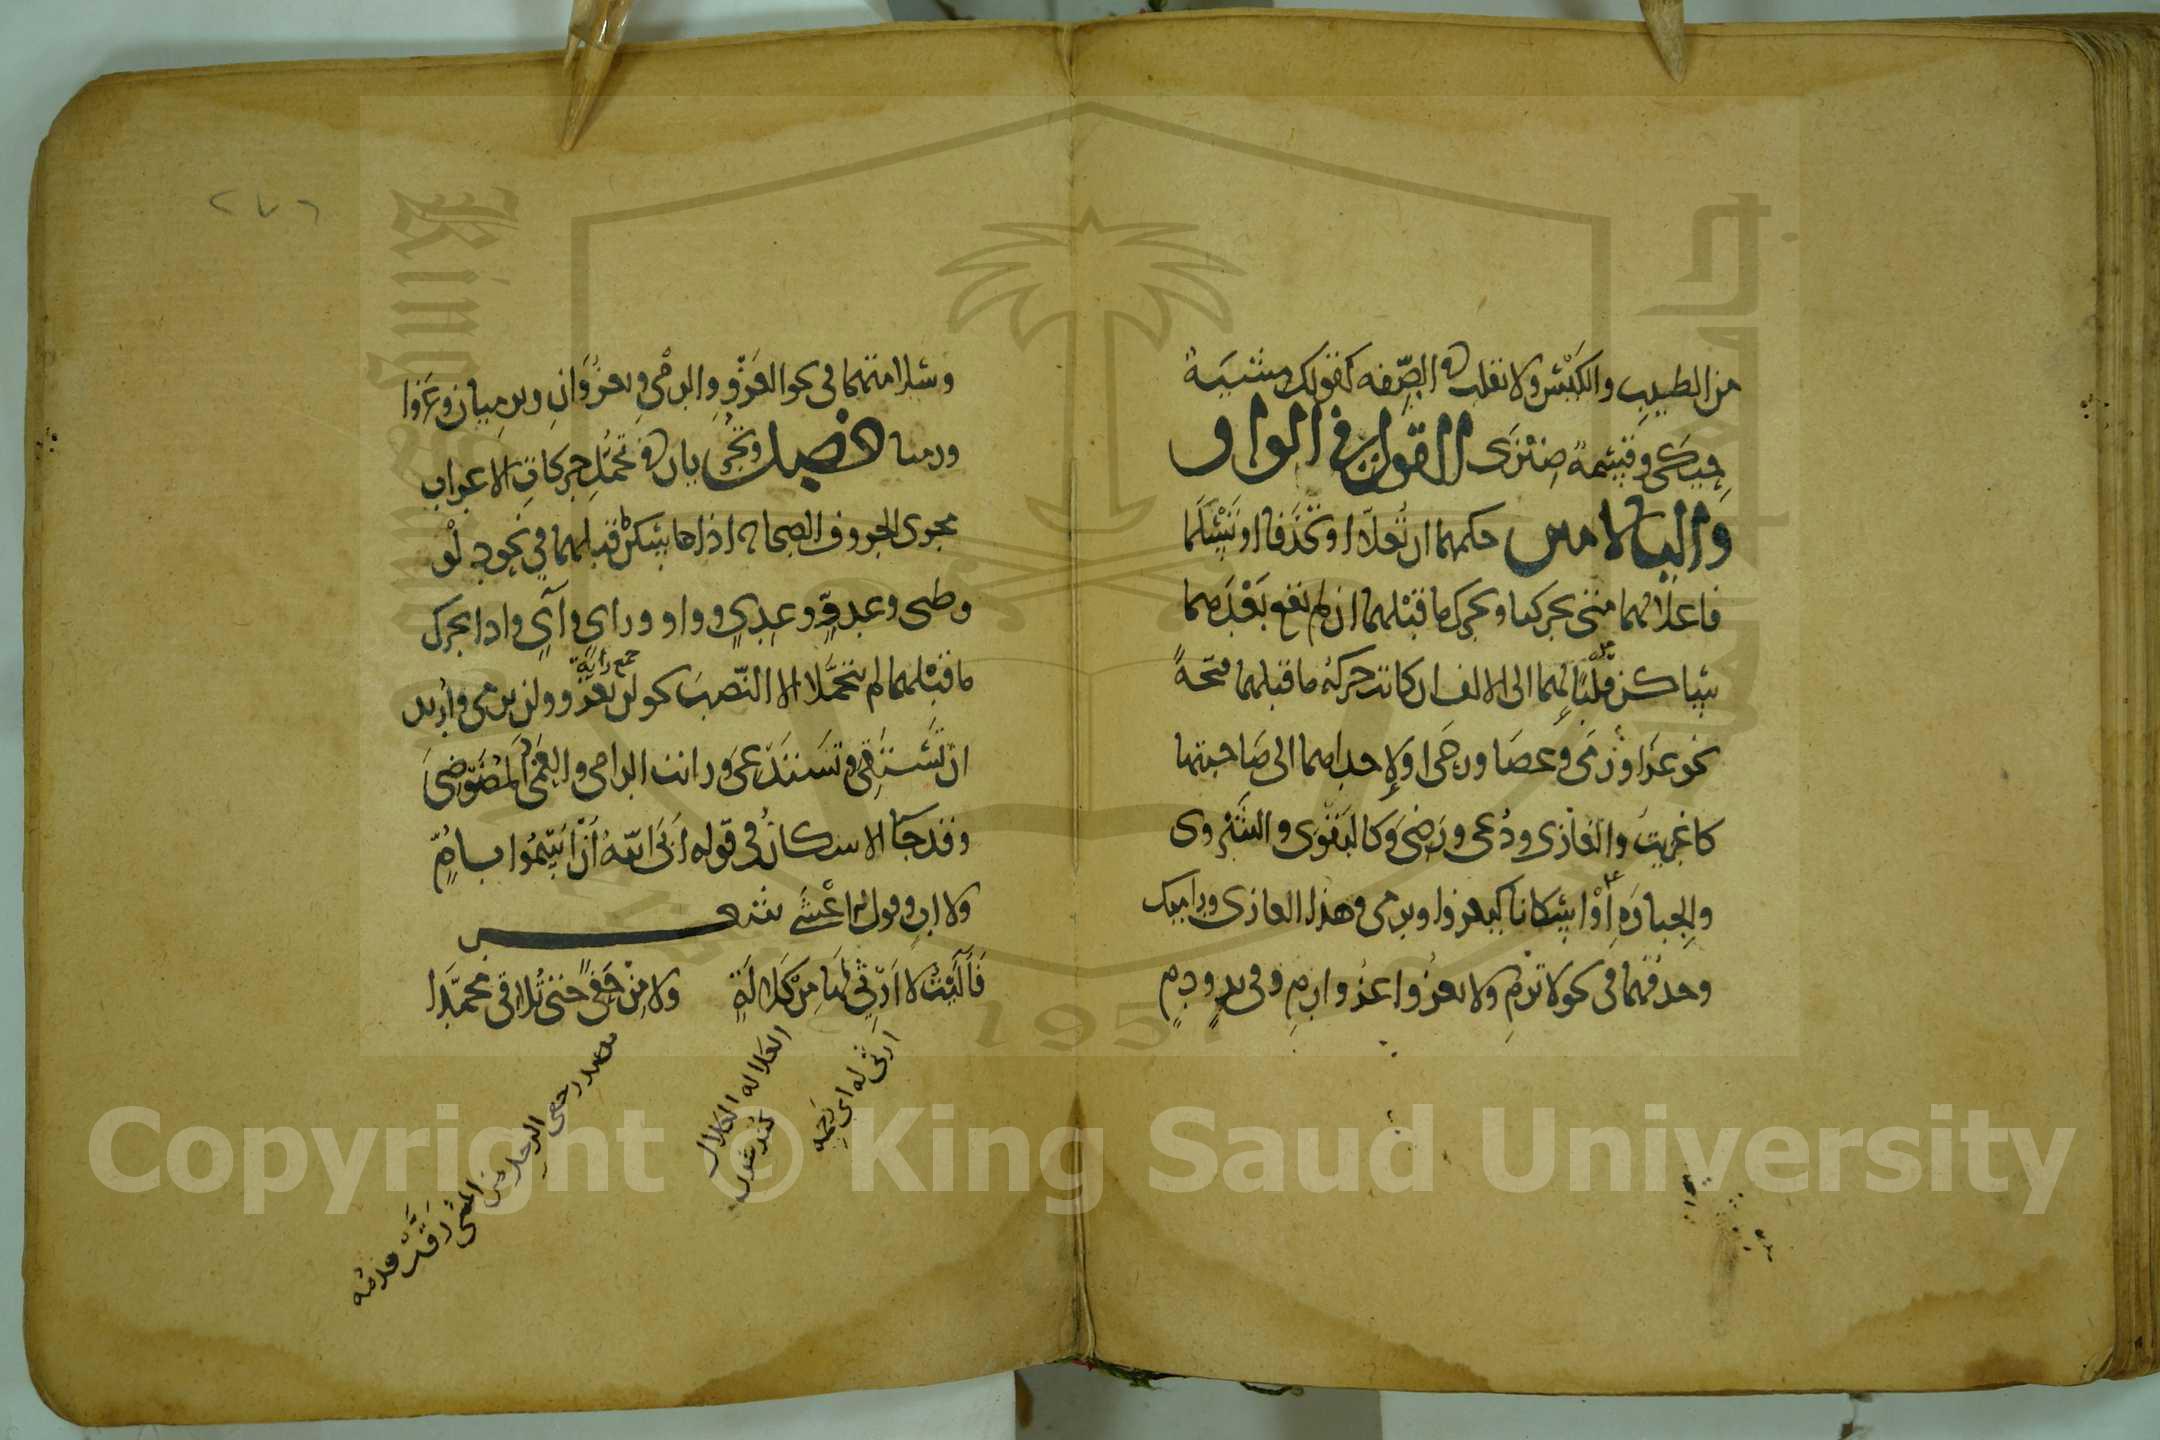 من الطيب والكيس ولا تقلب في الصفة كقولك مشية
حيكى وقسمة ضيزى القول في الواو
والياء لامين حكمهما ان تعلا او تحذفا او تسلما
فاعلالهما متى تحركتا وتحرك ما قبلهما ان لم يقع بعدهما
ساكن قلبا لهما الى الالف ان كانت حركة ما قبلهما فتحة
نحو غزا ورمى وعصا ورحى او لاحداهما الى صاحبتها
كاغزيت والغازى ودعى ورضى وكالبقوى والشروى
والجباوة او اسكانا كيغزوا ويرمى وهذا الغازى وراميك
وحذفهما فى نحو لا ترم ولا يغز واغز وارم وفى يد ودم
٢٧٦
وسلامتهما فى نحو الغزو والرمي ويغزوان ويرميان وغزوا
ورميا فصل ويجريان فى تحمل حركات الاعراب
مجرى الحروف الصحاح اذا سكن ما قبلهما في نحو دلو
وظبى وعدو وعدي وواو وراي وآي واذا تحرك
جمع راية
ما قبلهما لم يتحملا الا النصب نحو لن يغزو ولن يرمى واريد
ان تستقي وتستدعى ورايت الرامى والعمى والمضوضى
وقد جا الاسكان في قوله ابى الله ان اسمو بام
ولا اب وقول الاعشى شعر
فآليت لا ارثي لها من كلالة ولا من حفى حتى تلاقى محمدا
ارثى له اي رحمه
الكلاله الكلال
كند شدن
مصدر حفى الرجل من المشى رقت قدمه
Copyright © King Saud University
1957